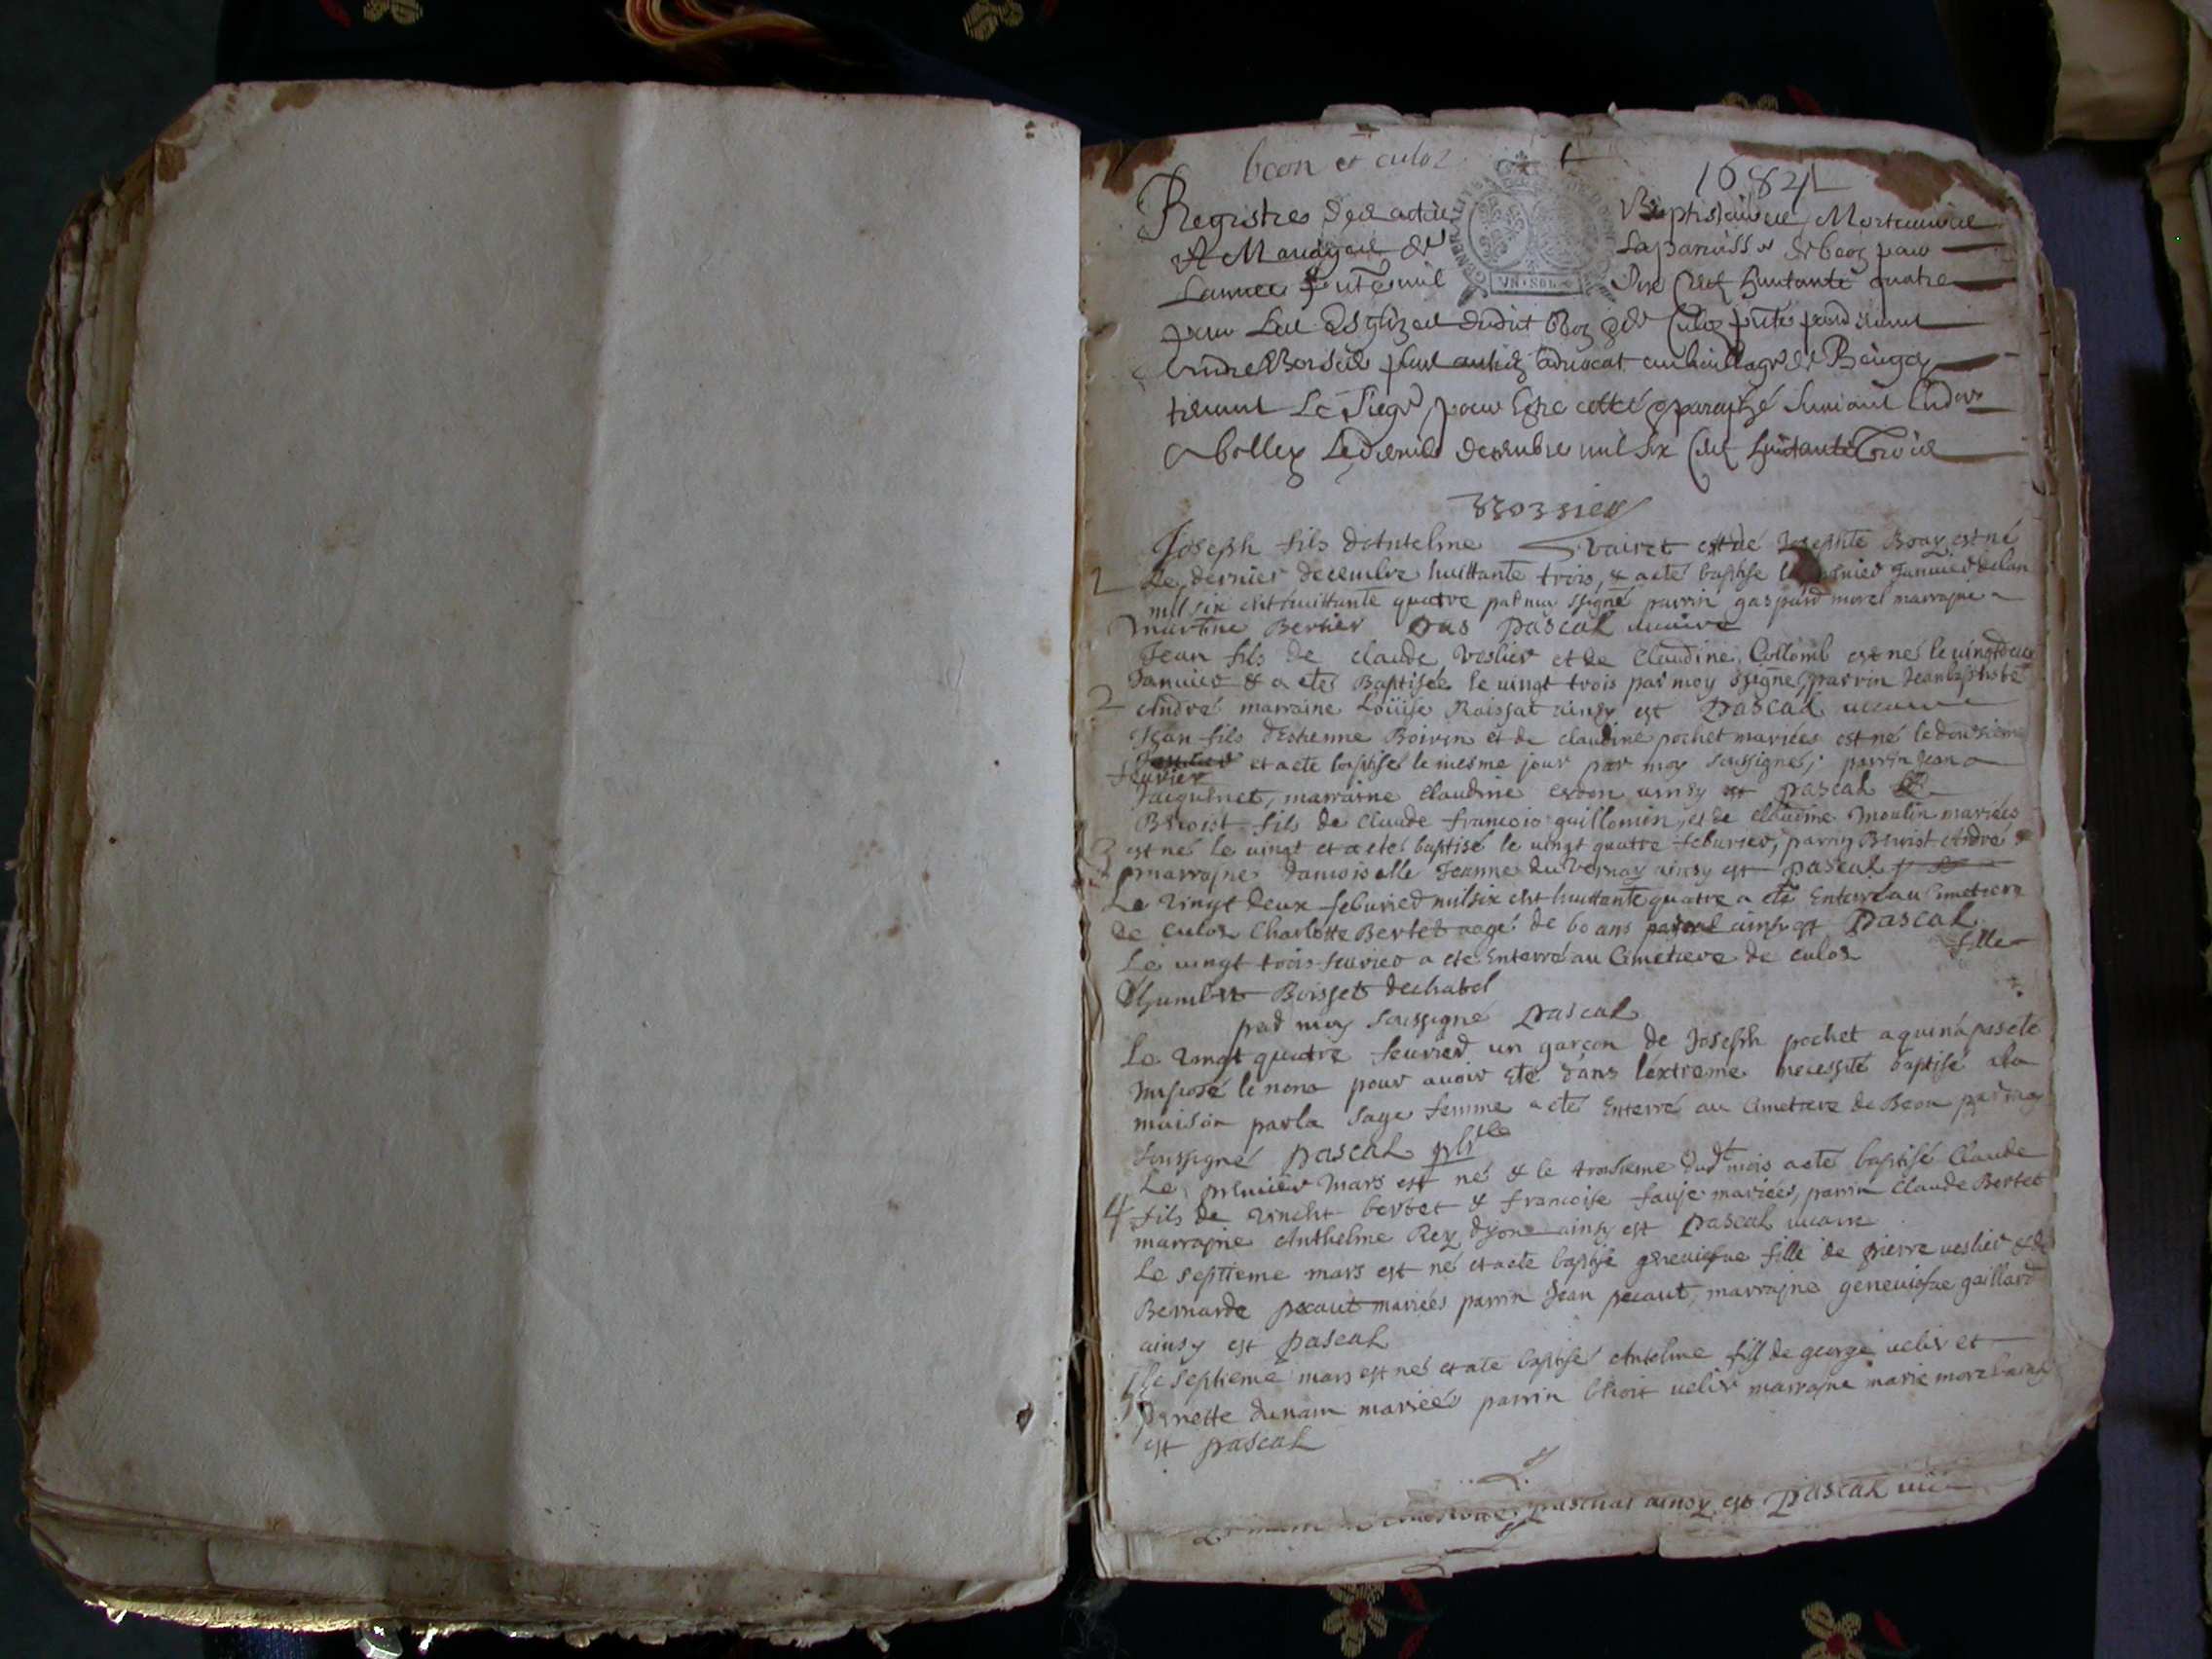 beon et culoz 1
1684
Registres des actes Baptistaires Mortuaires
et Mariages de la paroisse de beoz pour
Lannee mil Six Cent huictante quatre
pour Les Esglizes dudit Beoz et de Culoz
plus antien advocat au bailliage de Beugey
tenant Le Siege pour Estre cotté et paraphé suivant
A belley Le decembre mil six Cent huictante trois
GENERALITE
VN SOL
Joseph fils dAntelme Vairet et de Josephte Bouy est né
1 Le dernier decembre huittante trois, & a eté baptise le Januier de lan
mil six cent huittante quatre par moy ssigné parrin gaspard morel marrayne
Martine Bertier Pascal vicaire
Jean fils de claude Veslier et de Claudine Collomb est né le uingt deux
Januier & a eté Baptisée le uingt trois par moy ssigné, parrin Jean baptiste
2 André marraine Loüise Raissat ainsy est Pascal uicaire
Jean fils dEstienne Boiren et de claudine pochet mariées est né le douzieme
feurier et a eté baptisé le mesme jour par moy soussigné, parrin Jean
Jaiquenet, marraine Claudine cerdon ainsy est pascal
Benoist fils de Claude francois guillomin, et de claudine Moulin mariées
3 est né le uingt et a eté baptisé le uingt quatre feburier, parrin Benoist André
marrayne damoiselle Jeanne du Vernay ainsy est pascal
Le Vingt deux feburier mil six cent huittante quatre a eté Enterré au Cimetiere
de culoz Charlotte Bertet aagé de 60 ans ainsy est Pascal
Le uingt trois feurier a eté Enterré au Cimetiere de culoz fille
dhumbert Boisset
par moy Soussigné Pascal
Le Vingt quatre feurier un garcon de Joseph pochet a qui n'a pas eté
Imposé le nom pour auoir eté dans l'extreme necessité baptisé a la
maison par la Sage femme a eté Enterré au Cimetiere de Beon par moy
soussigné Pascal
Le premier Mars est né & le troisieme dudt mois a eté baptisé Claude
4 fils de Vincent bertet & francoise mariées, parrin Claude Bertet
marrayne Anthelme Rey ainsy est Pascal uicaire
Le septieme mars est né et a eté baptisé geneuiefue fille de pierre ueslier & de
Bernarde pecaut mariées parrin Jean pecaut, marrayne geneuiefue gaillard
ainsy est Pascal
Le septieme mars est né et a eté baptisé Antelme fils de george uelir et
pernette mariées parrin uelir marrayne marie morel ainsy
est pascal
ainsy est Pascal